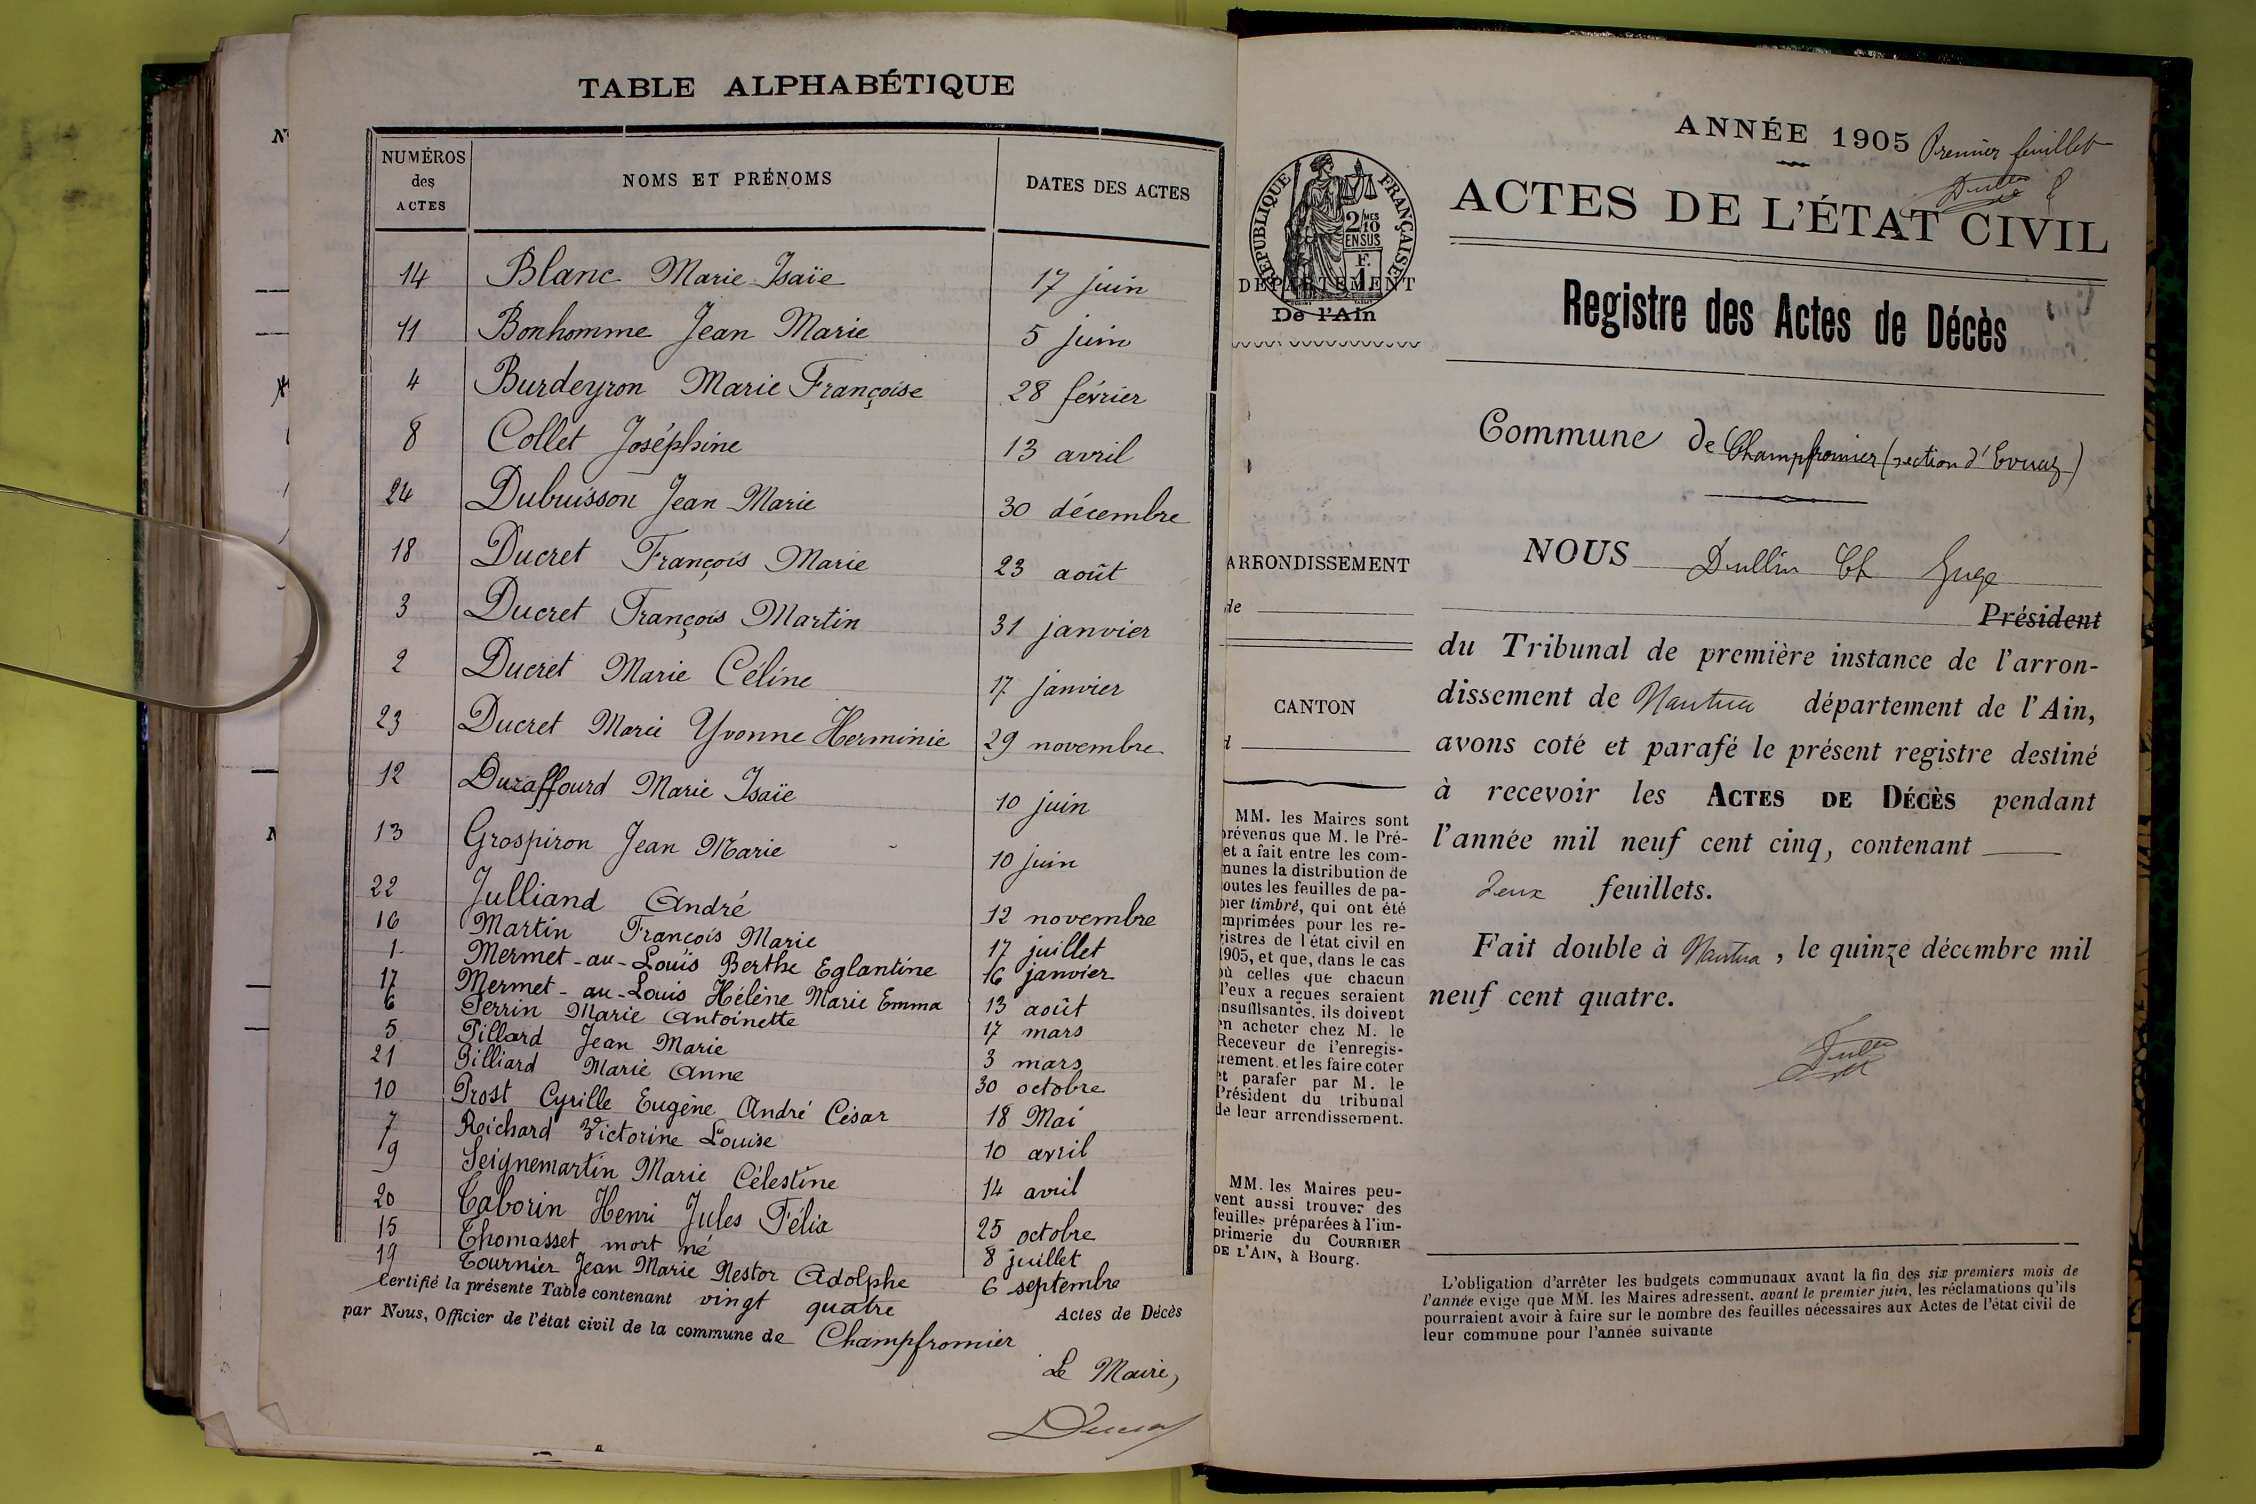 TABLE ALPHABÉTIQUE
NUMÉROS des ACTES NOMS ET PRÉNOMS DATES DES ACTES
14 Blanc Marie Isaïe 17 juin
11 Bonhomme Jean Marie 5 juin
4 Burdeyron Marie Françoise 28 février
8 Collet Joséphine 13 avril
24 Dubuisson Jean Marie 30 décembre
18 Ducret François Marie 23 août
3 Ducret François Martin 31 janvier
2 Ducret Marie Céline 17 janvier
23 Ducret Marie Yvonne Herminie 29 novembre
12 Duraffourd Marie Isaïe 10 juin
13 Grospiron Jean Marie 10 juin
22 Julliand André 12 novembre
16 Martin François Marie 17 juillet
1 Mermet-au-Louis Berthe Eglantine 16 janvier
17 Mermet-au-Louis Hélène Marie Emma 13 août
6 Perrin Marie Antoinette 17 mars
5 Pillard Jean Marie 3 mars
21 Billiard Marie Anne 30 octobre
10 Prost Cyrille Eugène André César 18 Mai
7 Reichard Victorine Louise 10 avril
9 Seignemartin Marie Célestine 14 avril
20 Taborin Henri Jules Félix 25 octobre
15 Thomasset mort né 8 juillet
19 Tournier Jean Marie Nestor Adolphe 6 septembre
Certifié la présente Table contenant vingt quatre Actes de Décès
par Nous, Officier de l'état civil de la commune de Champfromier
Le Maire,
ANNÉE 1905
Premier feuillet
ACTES DE L'ÉTAT CIVIL
RÉPUBLIQUE FRANÇAISE
2/10MES
EN SUS
F.
1
DÉPARTEMENT
De l'Ain
Registre des Actes de Décès
Commune de Champfromier (section d'Evuaz)
ARRONDISSEMENT
de
CANTON
d
NOUS Dullin Ch Juge
Président
du Tribunal de première instance de l'arron-
dissement de Nantua département de l'Ain,
avons coté et parafé le présent registre destiné
à recevoir les ACTES DE DÉCÈS pendant
l'année mil neuf cent cinq, contenant
deux feuillets.
Fait double à Nantua, le quinze décembre mil
neuf cent quatre.
MM. les Maires sont
prévenus que M. le Pré-
et a fait entre les com-
munes la distribution de
outes les feuilles de pa-
pier timbré, qui ont été
mprimées pour les re-
gistres de l'état civil en
1905, et que, dans le cas
où celles que chacun
d'eux a reçues seraient
nsuffisantes, ils doivent
en acheter chez M. le
Receveur de l'enregis-
trement, et les faire coter
et parafer par M. le
Président du tribunal
de leur arrondissement.
MM. les Maires peu-
vent aussi trouver des
feuilles préparées à l'im-
primerie du COURRIER
DE L'AIN, à Bourg.
L'obligation d'arrêter les budgets communaux avant la fin des six premiers mois de
l'année exige que MM. les Maires adressent, avant le premier juin, les réclamations qu'ils
pourraient avoir à faire sur le nombre des feuilles nécessaires aux Actes de l'état civil de
leur commune pour l'année suivante